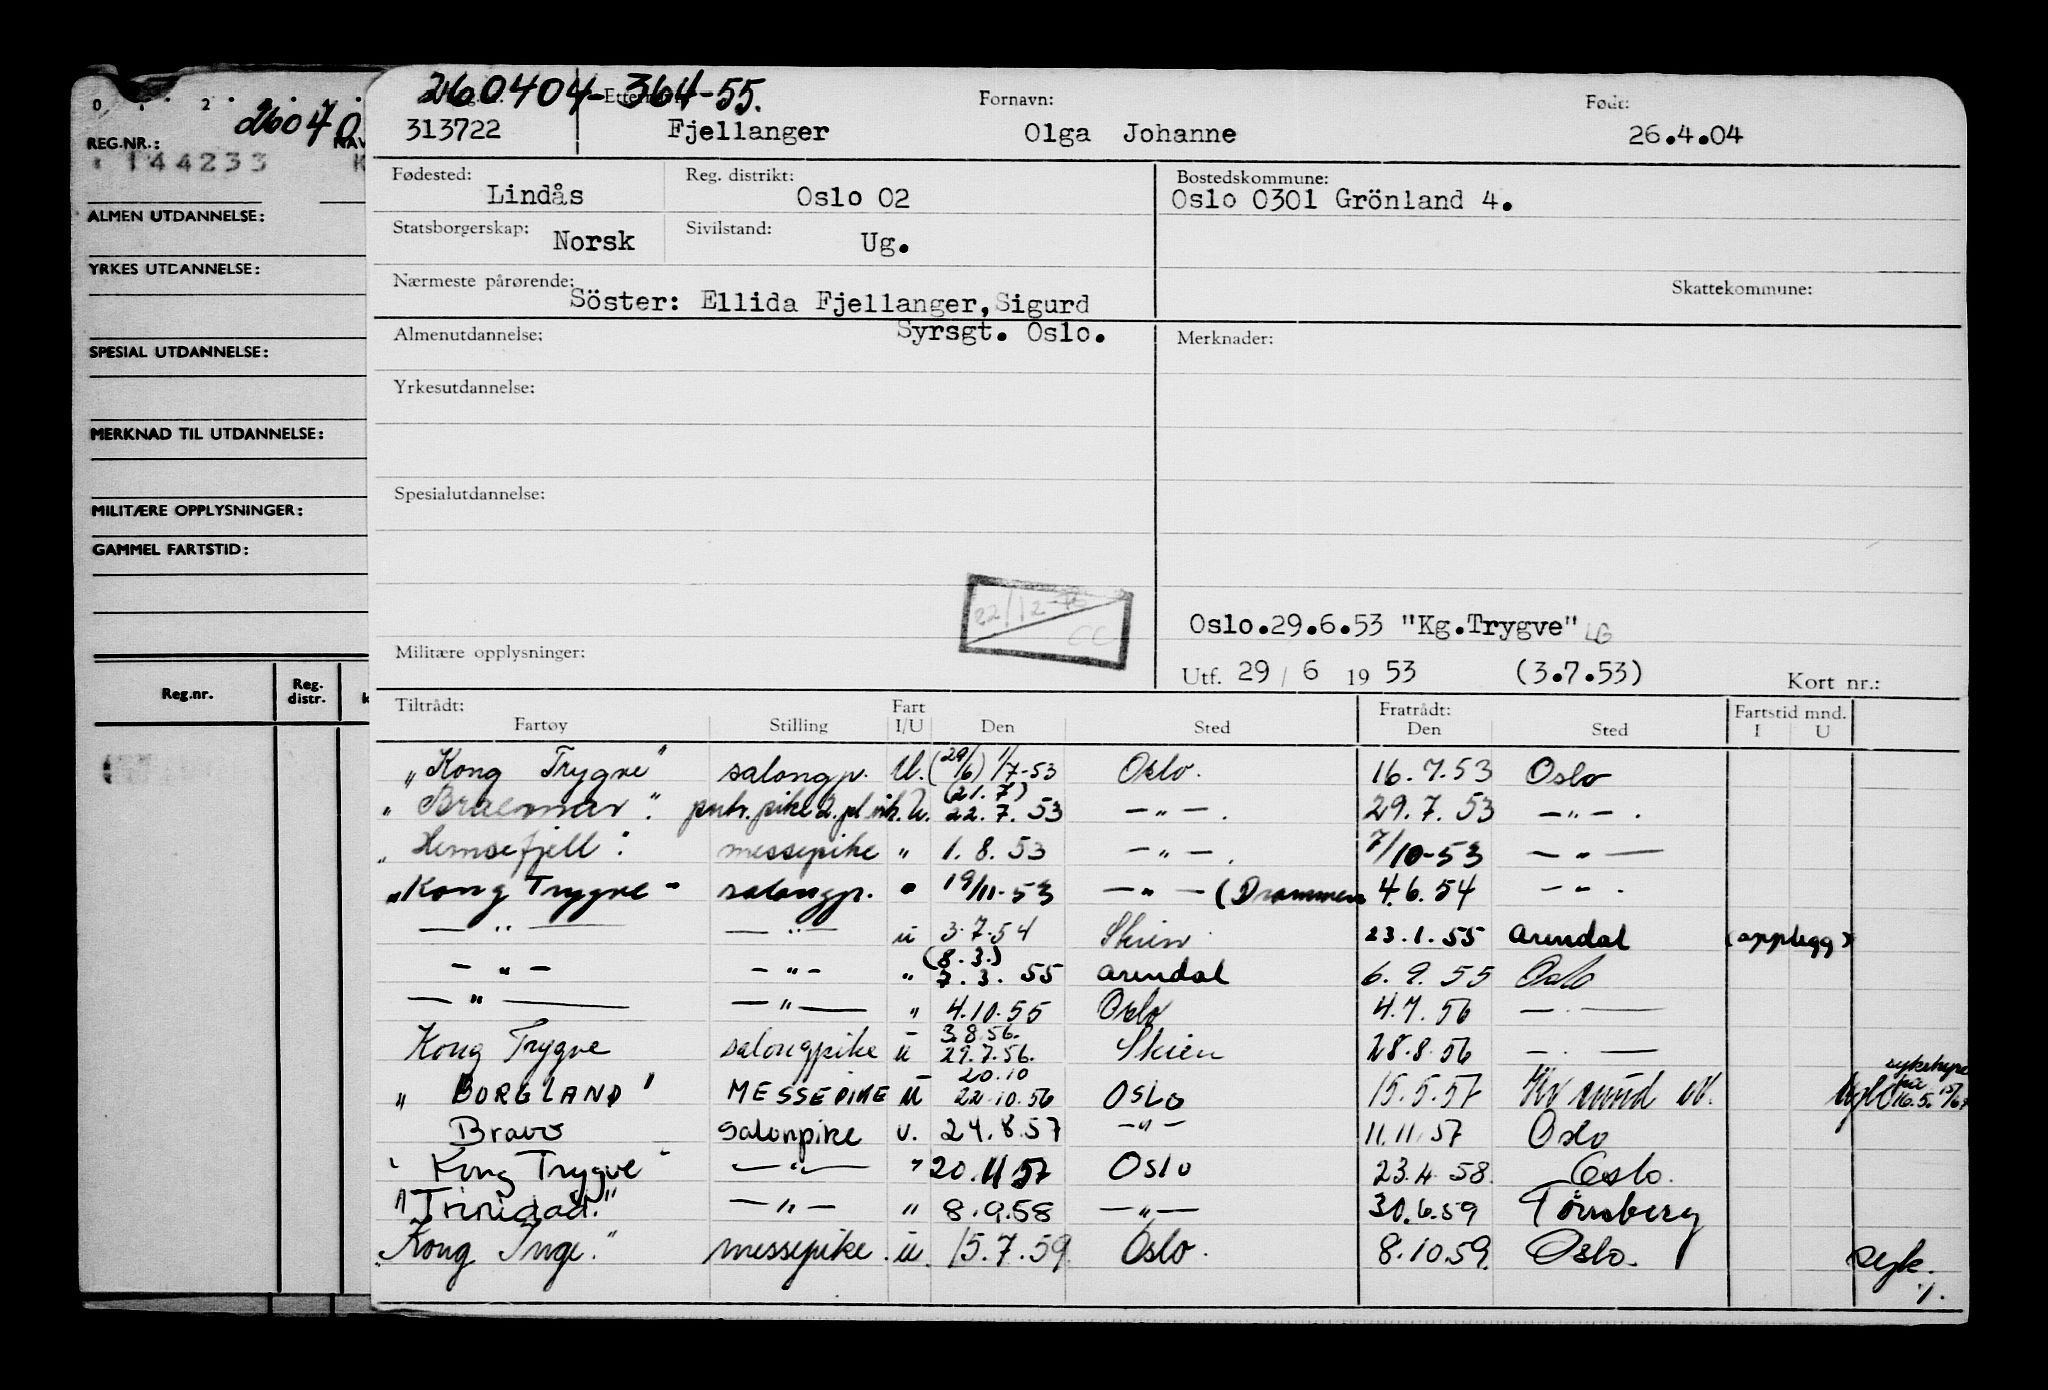 260404-364-55.
Reg.nr. Etternavn: Fornavn: Født:
313722 Fjellanger Olga Johanne 26.4.04
Fødested: Lindås Reg. distrikt: Oslo 02 Bostedskommune: Oslo 0301 Grönland 4.
Statsborgerskap: Norsk Sivilstand: Ug.
Nærmeste pårørende: Söster: Ellida Fjellanger, Sigurd Skattekommune:
Syrsgt. Oslo.
Almenutdannelse: Merknader:
Yrkesutdannelse:
Spesialutdannelse:
22/12-
CC
Oslo.29.6.53 "Kg.Trygve" LG
Militære opplysninger:
Utf. 29 / 6 19 53 (3.7.53) Kort nr.:
Tiltrådt: Fart Fratrådt: Fartstid mnd.
Fartøy Stilling I/U Den Sted Den Sted I U
"Kong Trygve" salongp. U. (29/6) 1/7-53 Oslo. 16.7.53 Oslo
(21.7)
"Braemar". pike 2. pl U. 22.7.53 —"—. 29.7.53 —"—.
"Hemsefjell". messepike " 1.8.53 —"—. 7/10-53 —"—
"Kong Trygve" salongp. " 19/11-53 —"— (Drammen 4.6.54 —"—.
—"— —"— u 3.7.54 Skien 23.1.55 Arendal (opplegg)
(8.3.)
—"— —"— " 7.3.55 Arendal 6.9.55 Oslo
—"— —"— " 4.10.55 Oslo 4.7.56 —.—
3.8.56.
Kong Trygve salongpike u 29.7.56. Skien 28.8.56 —.—
20.10
"BORGLAND" MESSEPIKE u 22.10.56 OSLO 15.5.57
16.5.
Bravo Salonpike u. 24.8.57 —"— 11.11.57 Oslo
"Kong Trygve" —"— " 20.11.57 Oslo 23.4.58. Oslo.
"Trinidad." —"— " 8.9.58 —"— 30.6.59 Tønsberg
"Kong Inge." messepike. u. 15.7.59 Oslo. 8.10.59. Oslo. syk.
0 1 2
26040
REG.NR.: NAV
144233 K
ALMEN UTDANNELSE:
YRKES UTDANNELSE:
SPESIAL UTDANNELSE:
MERKNAD TIL UTDANNELSE:
MILITÆRE OPPLYSNINGER:
GAMMEL FARTSTID:
Reg.nr. Reg. distr. k